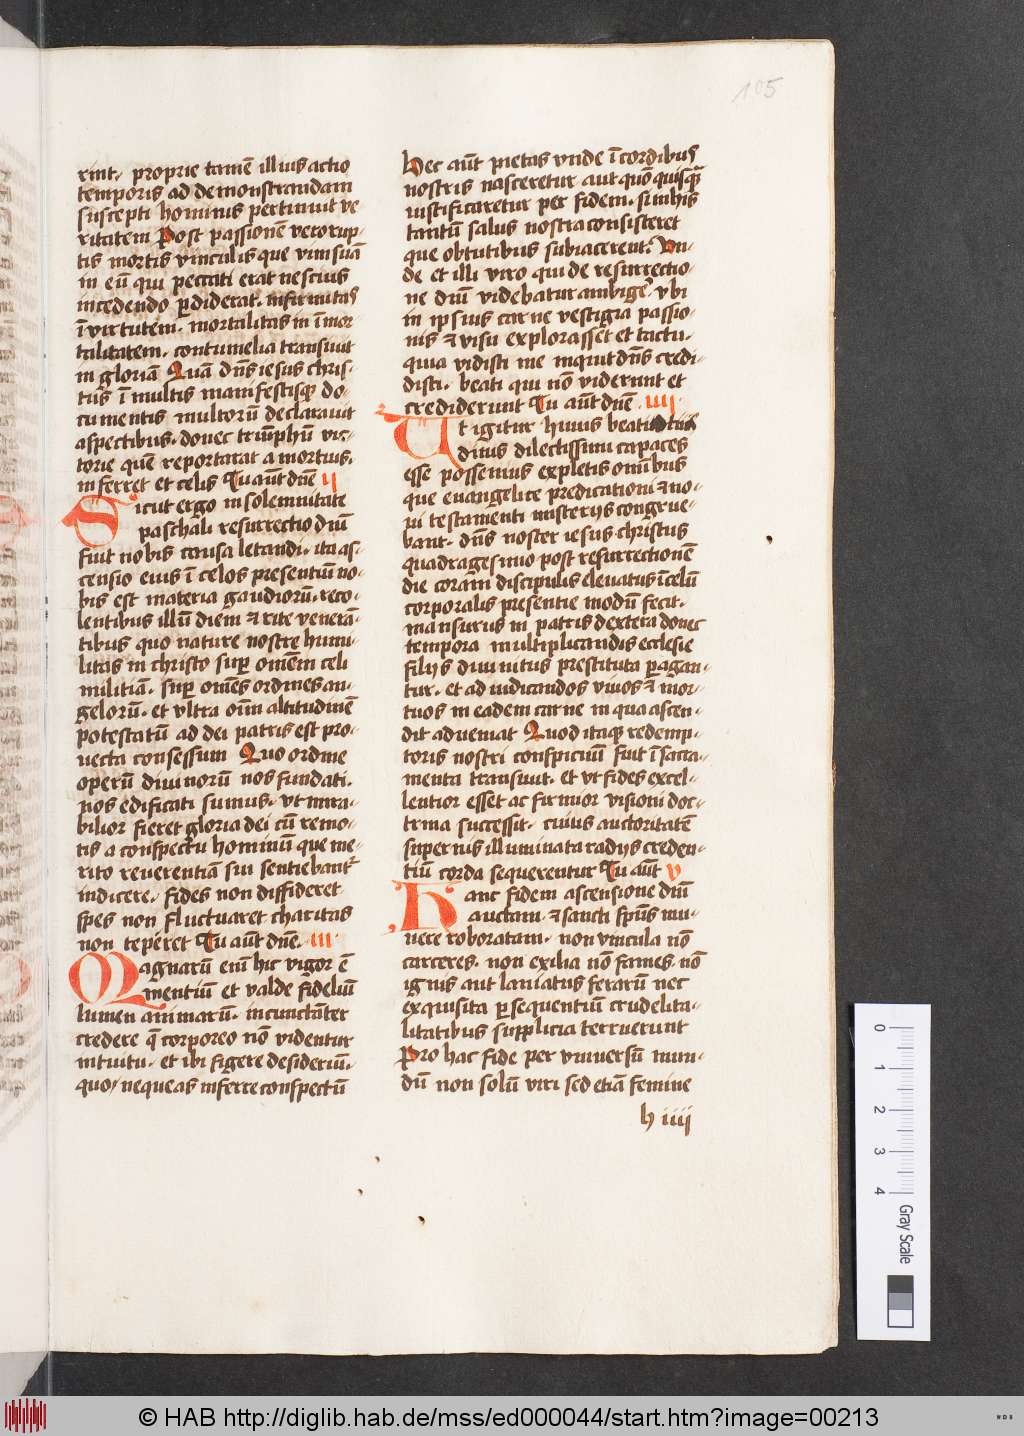 105
rint, proprie tamē illius actio
temporis ad demonstrandam
suscepti hominis pertinuit ve
ritatem Post passionē vero rup-
tis mortis vinculis que vim suā
in eū qui peccati erat nescius
incedendo ꝑdiderat. infirmitas
ī virtutem. mortalitas in īmor
talitatem. contumelia transiuit
in gloriā Quā dn̄s iesus chris-
tus ī multis manifestisqꝫ do-
cumentis multorū declarauit
aspectibus. donec triūphū vic-
torie quē reportarat a mortuis.
inferret et celis Tu aūt dn̄e ij
Sicut ergo in solemnitate
paschali resurrectio dn̄i
fuit nobis causa letandi. ita as-
censio eius ī celos presentiū no-
bis est materia gaudiorū. reco-
lentibus illū diem ⁊ rite venerā-
tibus quo nature nostre humi-
litas in christo suꝑ om̄em celi
militiā. suꝑ om̄es ordines an-
gelorū. et vltra oīm altitudinē
potestatū ad dei patris est pro-
uecta consessum Quo ordine
operū diuinorū nos fundati.
nos edificati sumus. vt mira-
bilior fieret gloria dei cū remo-
tis a conspectu hominū que me-
rito reuerentiā sui sentiebantʳ
indicere. fides non diffideret
spes non fluctuaret charitas
non teperet Tu aūt dn̄e. iii.
Magnarū em̄ hic vigor ē
mentiū et valde fideliū
lumen animarū. incunctāter
credere q̄ corporeo nō videntur
intuitu. et ibi figere desideriū.
quo nequeas inferre conspectū
Hec aūt pietas vnde ī cordibus
nostris nasceretur aut quō quisqꝫ
iustificaretur per fidem. si in his
tantū salus nostra consisteret
que obtutibus subiacerent. Vn-
de et illi viro qui de resurrectio-
ne dn̄i videbatur ambige', vbi
in ipsius carne vestigia passio-
nis ⁊ visu explorasset et tactu.
quia vidisti me inquit dn̄s credi-
disti. beati qui nō viderunt et
crediderunt Tu aūt dn̄e. iiij.
Ut igitur huius
dinis dilectissimi capaces
esse possemus expletis omībus
que euangelice predicationi ⁊ no-
ui testamenti misterijs congrue-
bant. dn̄s noster iesus christus
quadragesimo post resurrectionē
die coram discipulis eleuatus ī celū
corporalis presentie modū fecit.
mansurus in patris dextera donec
tempora multiplicandis ecclesie
filijs diuinitus prestituta ꝑagan-
tur. et ad iudicandos viuos ⁊ mor-
tuos in eadem carne in qua ascen-
dit adueniat Quod itaqꝫ redemp-
toris nostri conspicuū fuit ī sacra-
menta transiuit. et vt fides excel-
lentior esset ac firmior visioni doc-
trina successit. cuius auctoritatē
supernis illuminata radijs creden-
tiū corda sequerentur Tu aūt v
Hanc fidem ascensione dn̄i
auctam. ⁊ sancti spūs mu-
nere roboratam. non vincula nō
carceres. non exilia nō fames. nō
ignis aut laniatus ferarū nec
exquisita ꝑsequentiū crudelita-
litatibus supplicia terruerunt
Pro hac fide per vniuersū mun-
dū non solū viri sed etiā femine
h iiij
0 1 2 3 4
Gray Scale
© HAB http://diglib.hab.de/mss/ed000044/start.htm?image=00213